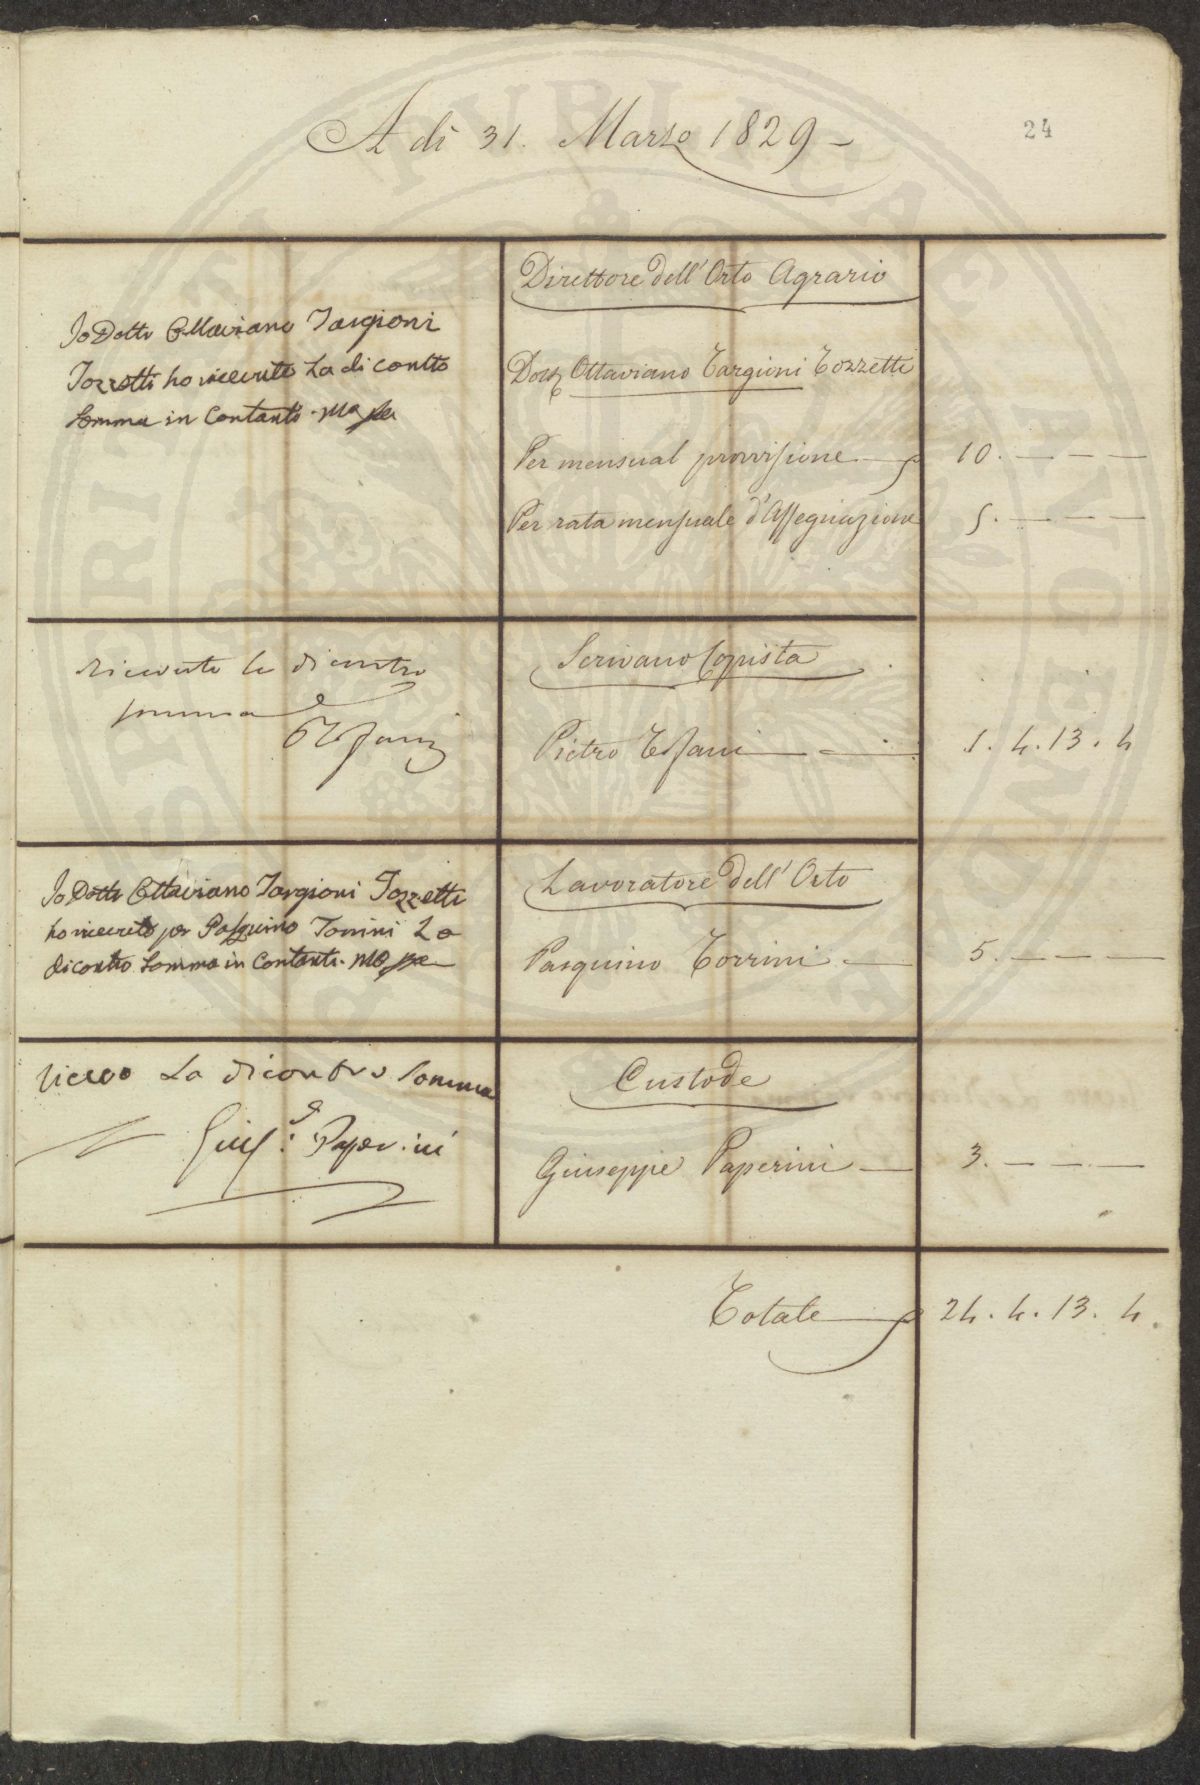 A dì 31. Marzo 1829 –
24
Direttore dell'Orto Agrario
Io Dottr Ottaviano Targioni
Tozzetti ho ricevuto La di contro
Somma in Contanti
Dott Ottaviano Targioni Tozzetti
Per mensual provvisione 10. — — —
Per rata mensuale d'Assegnazione 5. — — —
ricevuto la di contro
somma
Scrivano Copista
Pietro Tofani 1. 4. 13. 4
Io Dottr Ottaviano Targioni Tozzetti
ho ricevuto per Pasquino Torrini La
di contro Somma in Contanti
Lavoratore dell'Orto
Pasquino Torrini 5. — — —
ricevo La di contro somma
Gius.e Paperini
Custode
Giuseppe Paperini — 3. — — —
Totale 24. 4. 13. 4.